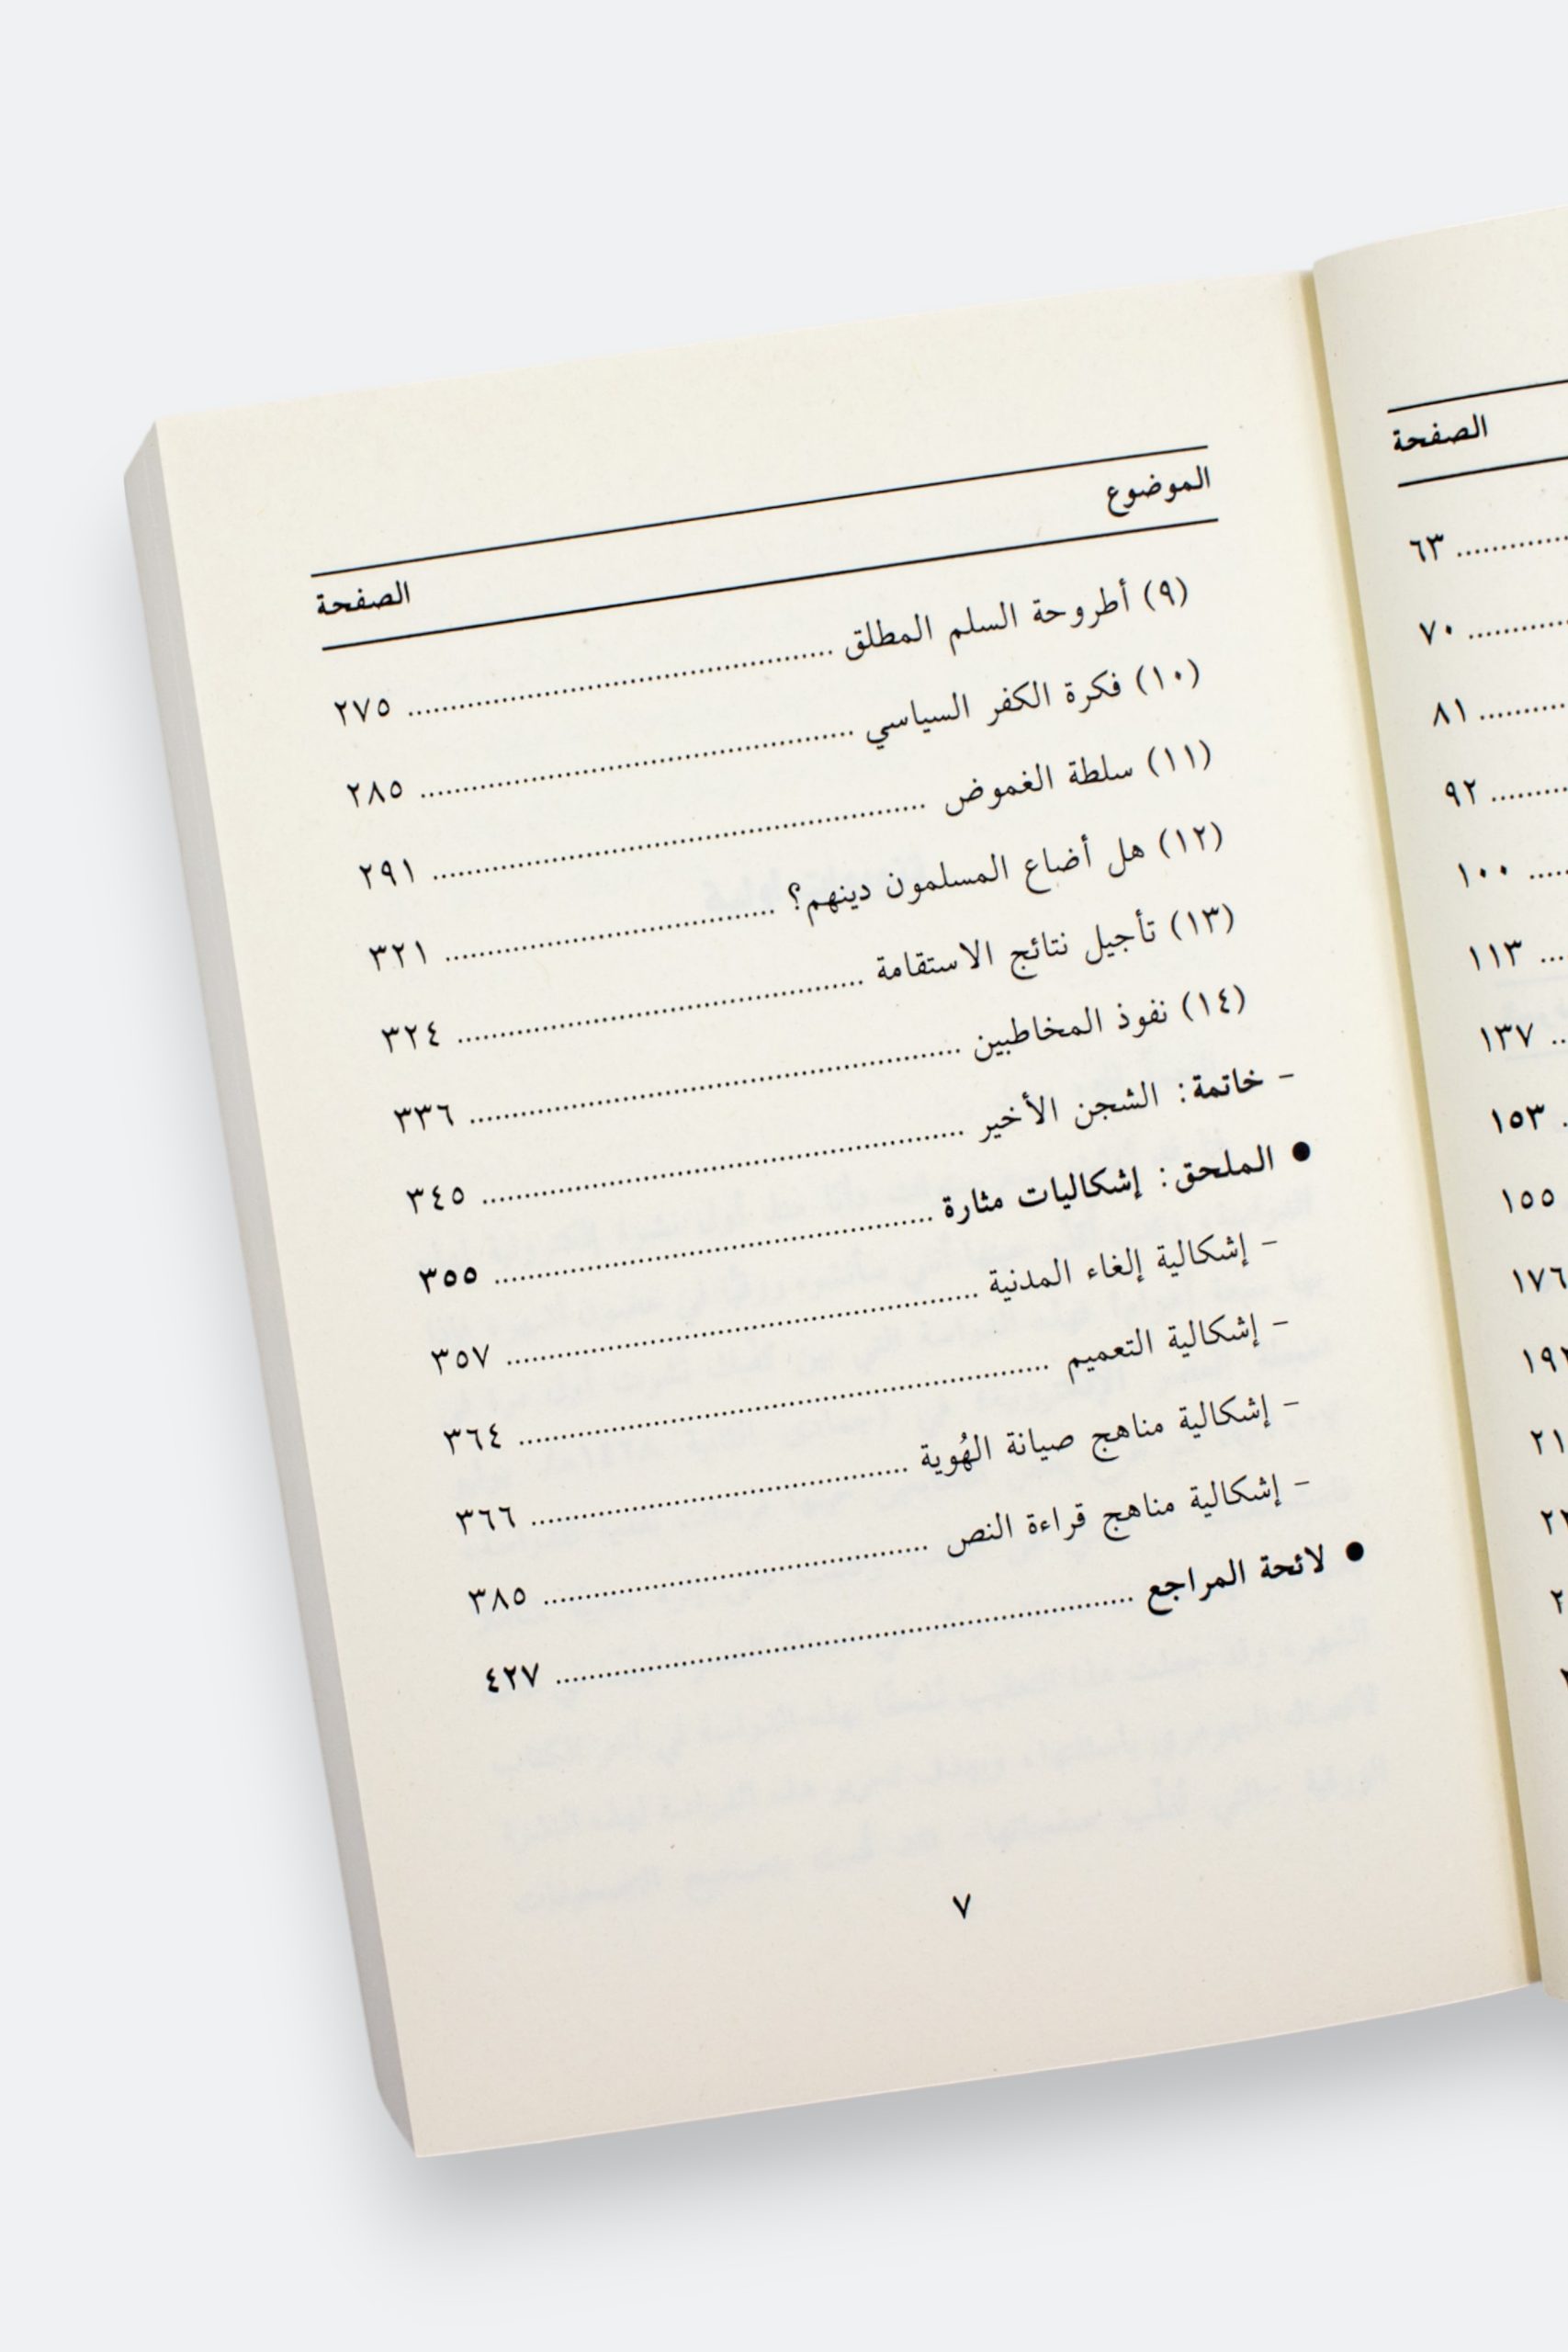 الصفحة
٦٣ ............
٧٠ ............
٨١ ............
٩٢ ............
١٠٠ ......
١١٣ ...
١٣٧ ..
١٥٣ .
١٥٥
١٧٦
الموضوع الصفحة
(٩) أطروحة السلم المطلق ............ ٢٧٥
(١٠) فكرة الكفر السياسي ............ ٢٨٥
(١١) سلطة الغموض ............ ٢٩١
(١٢) هل أضاع المسلمون دينهم؟ ............ ٣٢١
(١٣) تأجيل نتائج الاستقامة ............ ٣٢٤
(١٤) نفوذ المخاطبين ............ ٣٣٦
- خاتمة: الشجن الأخير ............ ٣٤٥
● الملحق: إشكاليات مثارة ............ ٣٥٥
- إشكالية إلغاء المدنية ............ ٣٥٧
- إشكالية التعميم ............ ٣٦٤
- إشكالية مناهج صيانة الهُوية ............ ٣٦٦
- إشكالية مناهج قراءة النص ............ ٣٨٥
● لائحة المراجع ............ ٤٢٧
٧